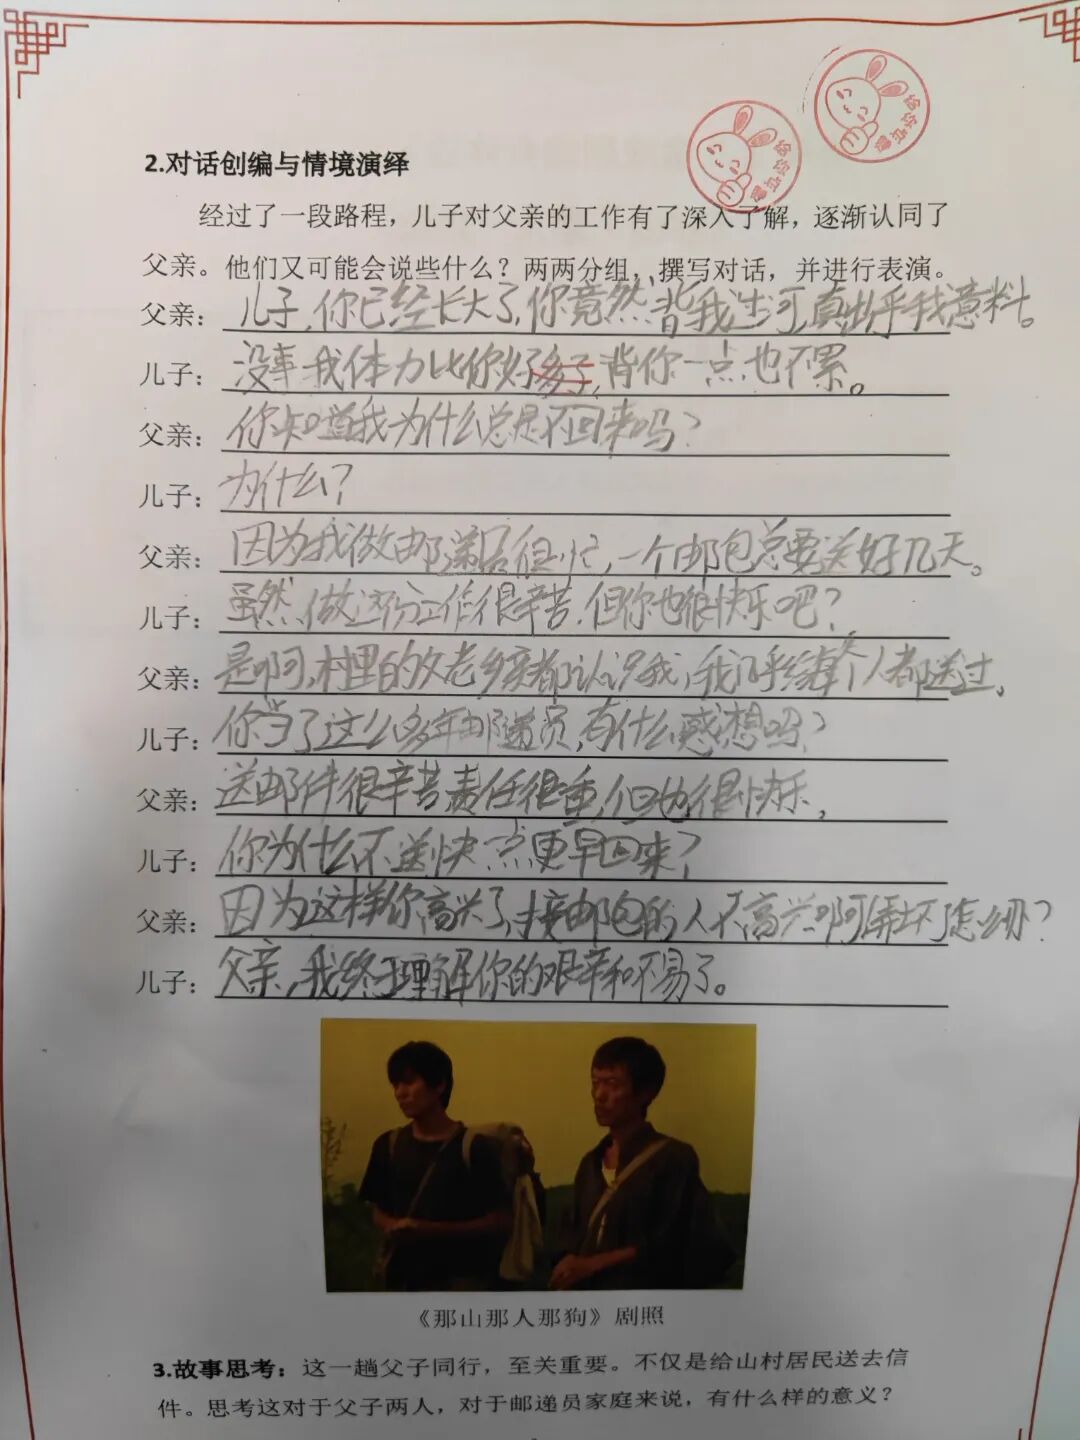 2.对话创编与情境演绎
经过了一段路程，儿子对父亲的工作有了深入了解，逐渐认同了
父亲。他们又可能会说些什么？两两分组，撰写对话，并进行表演。
父亲：儿子，你已经长大了，你竟然背我过河，真出乎我意料。
儿子：没事，我体力比你好多了，背你一点也不累。
父亲：你知道我为什么总是不回来吗？
儿子：为什么？
父亲：因为我做邮递员很忙，一个邮包总要送好几天。
儿子：虽然，做这份工作很辛苦，但你也很快乐吧？
父亲：是啊，村里的父老乡亲都认识我，我几乎给每个人都送过，
儿子：你当了这么多年邮递员，有什么感想吗？
父亲：送邮件很辛苦责任很重，但也很快乐，
儿子：你为什么不送快一点更早回来？
父亲：因为这样你高兴了，接邮包的人不高兴啊弄坏了怎么办？
儿子：父亲，我终于理解你的艰辛和不易了。
《那山那人那狗》剧照
3.故事思考：这一趟父子同行，至关重要。不仅是给山村居民送去信
件。思考这对于父子两人，对于邮递员家庭来说，有什么样的意义？